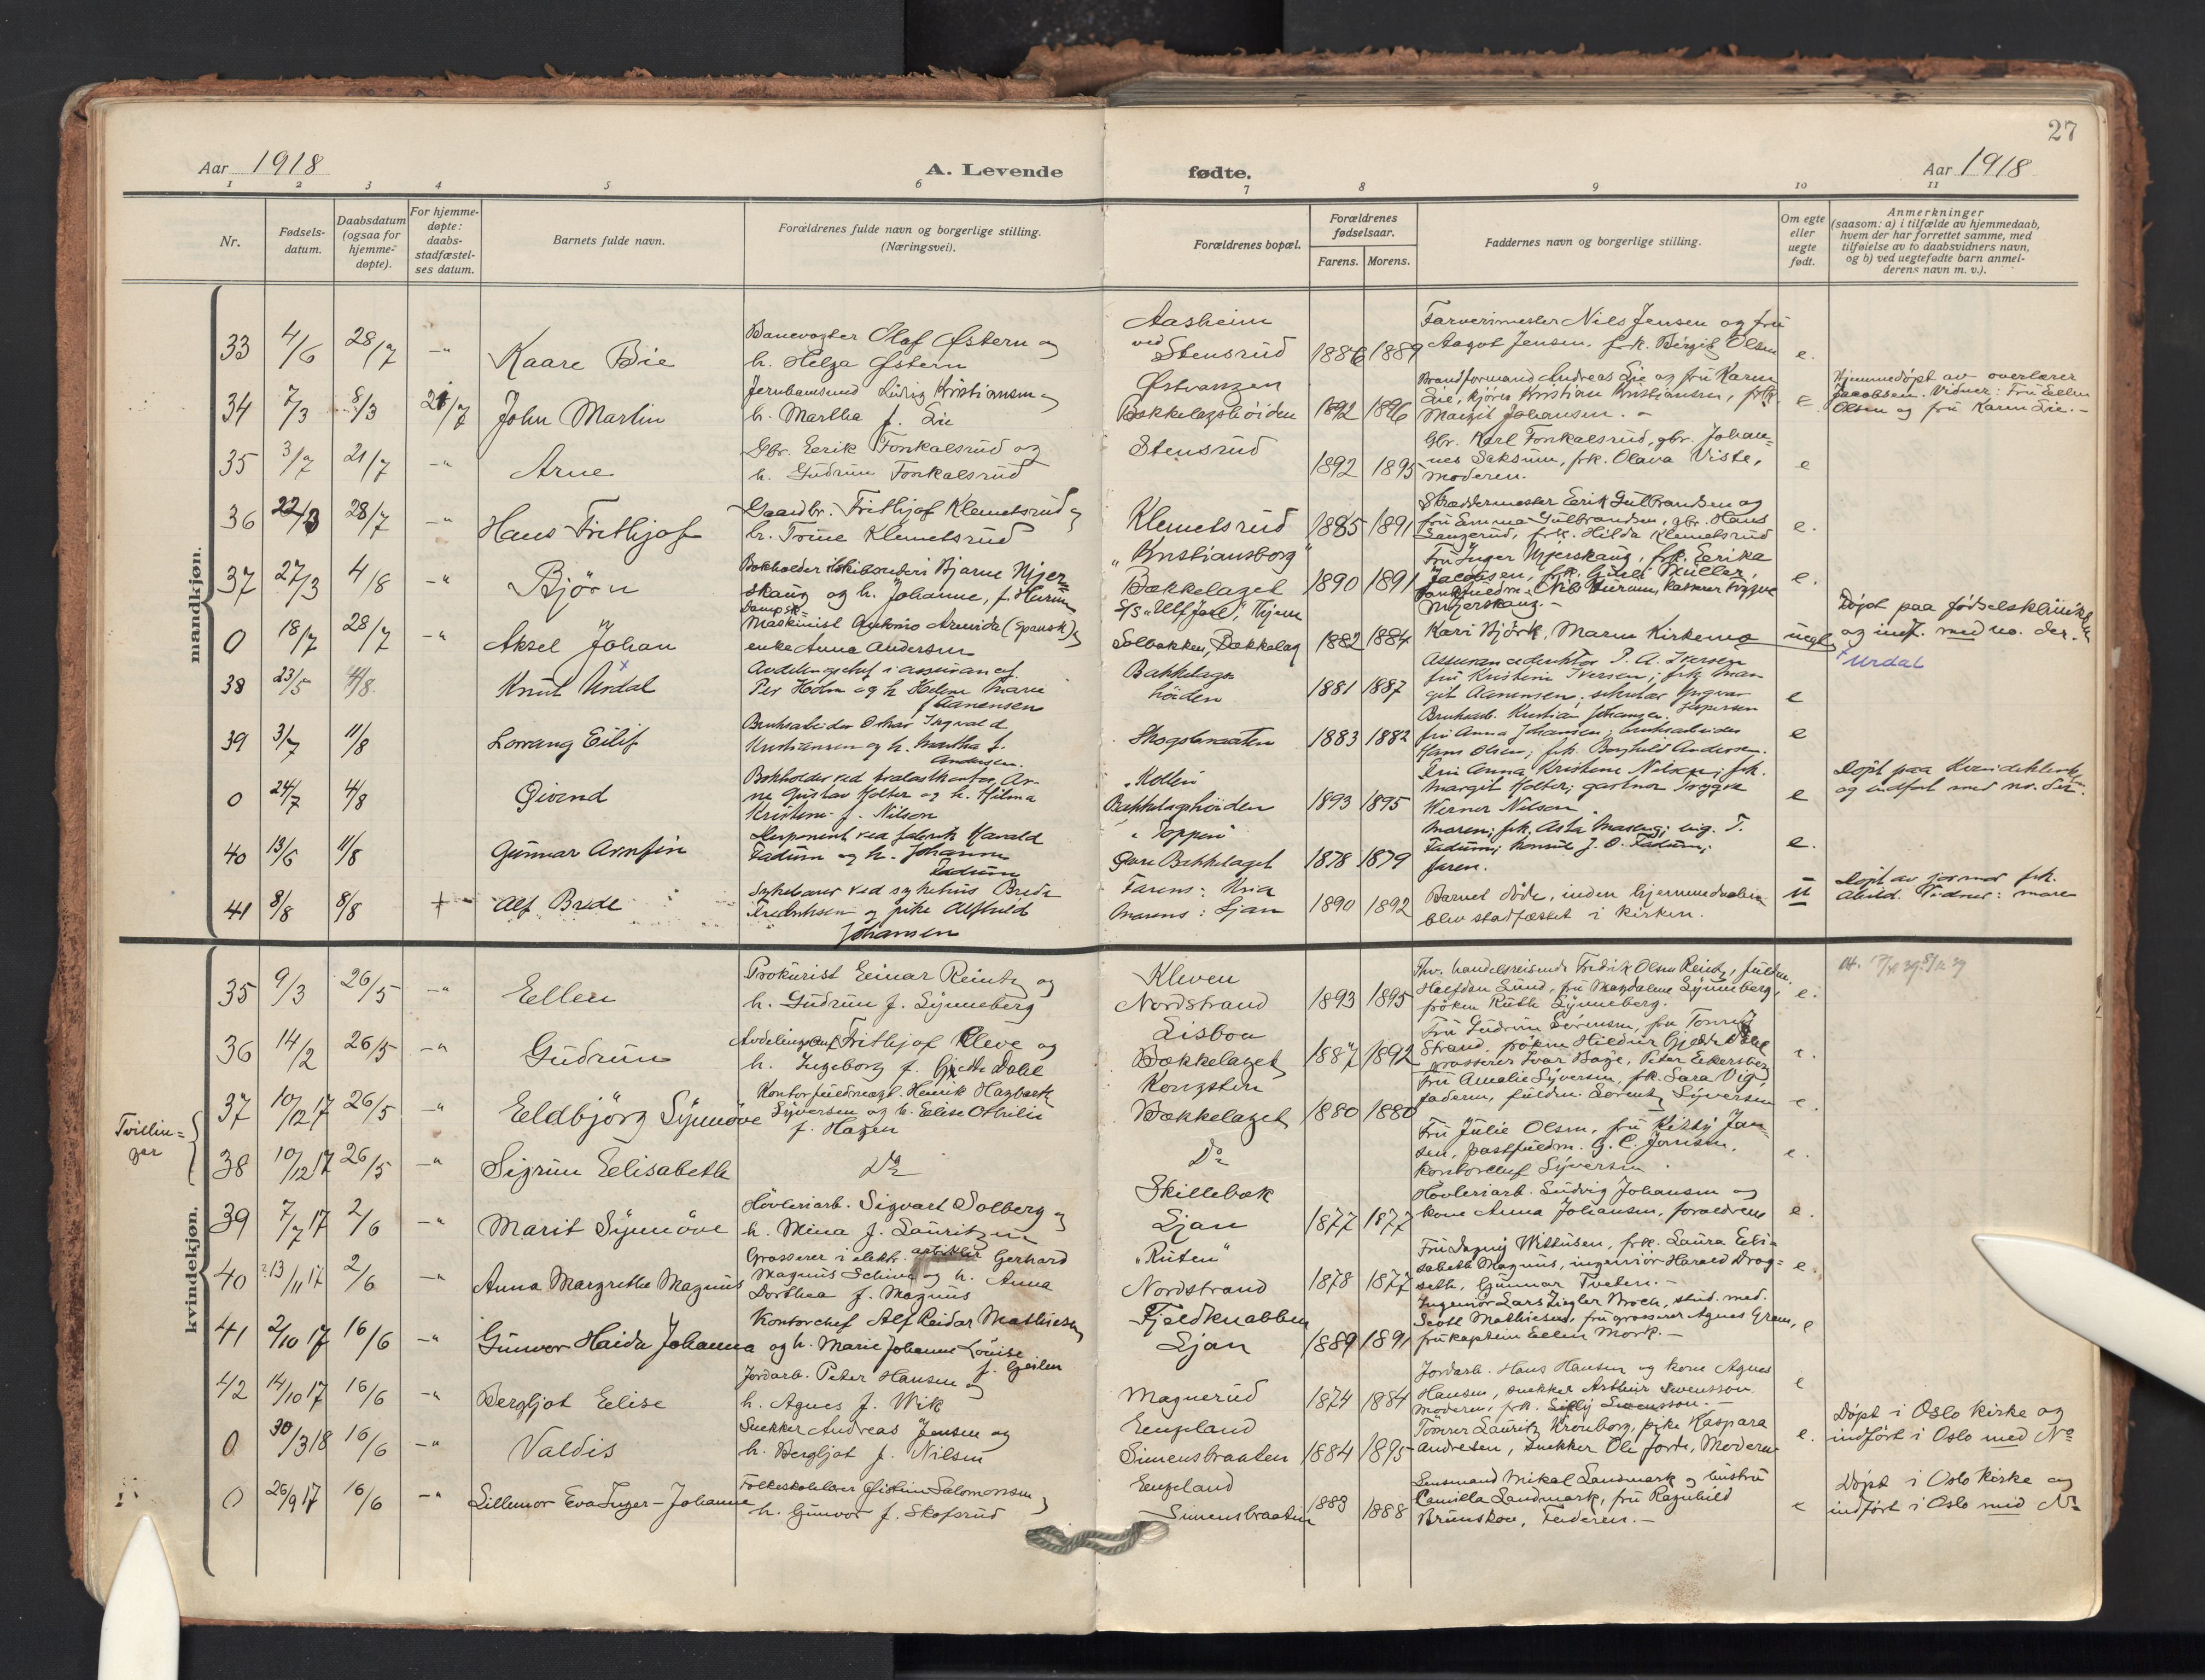 27
Aar 1918
A. Levende
fødte.
Aar 1918
1 2 3 4 5 6 7 8 9 10 11
Nr.
Fødsels-
datum.
Daabsdatum
(ogsaa for
hjemme-
døpte).
For hjemme-
døpte:
daabs-
stadfæstel-
ses datum.
Barnets fulde navn.
Forældrenes fulde navn og borgerlige stilling.
(Næringsvei).
Forældrenes bopæl.
Forældrenes
fødselsaar.
Farens. Morens.
Faddernes navn og borgerlige stilling.
Om egte
eller
uegte
født.
Anmerkninger
(saasom: a) i tilfælde av hjemmedaab,
hvem der har forrettet samme, med
tilføielse av to daabsvidners navn,
og b) ved uegtefødte barn anmel-
derens navn m. v.).
mandkjøn.
33 4/6 28/7 -"- Kaare Bie
Banevogter Olaf Østern og
h. Helga Østern
Aasheim
ved
Stensrud
1886 1889
Farverimester Nils Jensen og fru
Aagot Jensen, frk. Birgit Olsen
e.
34 7/3 8/3 21/7 John Martin
Jernbanemand Ludvig Kristiansen og
h. Martha f. Lie
Østvangen
Bækkelagshöiden
1892 1896
Brandformand Andreas Lie og fru Karen
Lie, kjører Kristian Kristiansen, frk.
Margit Johansen. -
e
Hjemmedöpt av overlærer
Jacobsen. Vidner: Fru Ellen
Olsen og fru Karen Lie. -
35 3/7 21/7 -"- Arne
Gbr. Eerik Fonkalsrud og
h. Gudrun Fonkalsrud
Stensrud
1892 1895
Gbr. Karl Fonkalsrud, gbr. Johan=
nes Saksum, frk. Olava Viste,
moderen.
e
36 22/3 28/7 -"- Hans Frithjof
Gaardbr. Frithjof Klemetsrud og
h. Trine Klemetsrud
Klemetsrud
1885 1891
Skræddermester Eerik Gulbrandsen og
fru Emma Gulbrandsen, gbr. Hans
frk. Hilda Klemetsrud
e.
37 27/3 4/8 -"- Bjørn
Bokholder Bjarne Mjer=
skaug og h. Johanne, f. Hurum
"Kristiansborg"
Bækkelaget
1890 1891
Fru Inger Mjerskaug, frk. Eerika
Jacobsen, frk. Müller,
Nils Hurum, kasserer Trygve
Mjerskaug. -
e.
0 18/7 28/7 -"- Aksel Johan
Dampsk.
Maskinist Antonio Armida (Spansk) og
enke Anna Andersen
S/S "Ulf Jarl", Hjem
Solbakken, Bækkelag
1882 1884
Kari Björk, Maren Kirkemo
uegte
Döpt paa Fødselsklinikken
og indf. med no. der.
38 23/5 4/8 Knut Urdal x
Avdelingschef i assurance
Per Holm og h. Helene Marie
f. Aanensen
Bækkelags
høiden
1881 1887
Assurancedirektør P. A. Iversen
fru Kristine Iversen; frk. Mar-
git Aanensen, sekretær Yngvar
Jespersen
e
x Urdal
39 3/7 11/8 Lorang Eilif
Bruksarbeider Oskar Ingvald
Kristiansen og h. Martha f.
Andersen.
Skogsbraaten
1883 1882
Bruksarb. Kristian Johansen,
fru Anna Johansen; bruksarbeider
Hans Olsen; frk. Borghild Andersen.
e
0 24/7 4/8 Øivind
Bokholder ved Ar-
ne Gustav Holter og h. Hilma
Kristine f. Nilsen
"Kollen"
Bækkelagshöiden
1893 1895
Fru Anna Kristine Nilsen; frk.
Margit Holter; gartner Trygve
Werner Nilsen
e
Döpt paa Kvindeklinikken
og indført med no. der.
40 13/6 11/8 Gunnar Arnfin
Disponent ved fabrik Harald
Fadum og h. Johanne
Fadum
"Toppen"
Øvre Bækkelaget
1878 1879
Moren; frk. Asta ing. T.
Fadum; konsul J. O. Fadum;
faren.
e.
41 8/8 8/8 + Alf Brede
Sykebærer ved sykehus Brede
Fredriksen og pike Alfhild
Johansen
Farens: Kria
Morens: Ljan
1890 1892
Barnet döde, inden hjemmedaaben
blev stadfæstet i kirken.
u
Døpt av jormor frk.
Vidner:
kvindekjøn.
35 9/3 26/5 -"- Eellen
Prokurist Eeinar Reintz og
h. Gudrun f. Synneberg
Kleven
Nordstrand
1893 1895
Fhv. handelsreisende Fredrik Olsen Reintz, fuldm.
Halfdan Lund, fru Magdalene Synneberg,
frøken Ruth Synneberg.
e.
36 14/2 26/5 -"- Gudrun
Avdelingschef Frithjof Kleve og
h. Ingeborg f. Gjethe Dahl
Lisbon
Bækkelaget
1887 1892
Fru Gudrun Sørensen, fru Tonny
Strand, frøken Hildur Gjethe Dahl
grosserer Ivar Bøge, Peter Eckersberg
e.
Tvillin=
ger
37 10/12 17 26/5 -"- Eeldbjörg Synnöve
Kontorfuldmægt. Henrik Hagbarth
Syversen og h. Eelise Othilie
f. Hagen
Kongsten
Bækkelaget
1880 1880
Fru Amalie Syversen, frk. Sara Vig,
faderen, fuldm. Lorentz Syversen
e.
38 10/12 17 26/5 -"- Sigrun Eelisabeth
Do
Do
Fru Julie Olsen, fru Kitty Jan=
sen, postfuldm. G. C. Jansen,
kontorchef Syversen.
e.
39 7/7 17 2/6 -"- Marit Synnöve
Hövleriarb. Sigvart Solberg og
h. Mina f. Lauritzen
Skillebæk
Ljan
1877 1877
Hövleriarb. Ludvig Johansen og
kone Anna Johansen, forældrene
e.
40 13/11 17 2/6 -"- Anna Margrethe Magnus
Grosserer i elektr. artikler Gerhard
Magnus Schive og h. Anna
Dorthea f. Magnus
"Ruten"
Nordstrand
1878 1877
Fru Dagny Withusen, frk. Laura Eeli=
sabeth Magnus, ingeniör Harald Drog=
seth, Gunnar Tveten. -
e.
41 2/10 17 16/6 -"- Gunvor Haida Johanna
Kontorchef Alf Reidar Mathiesen
og h. Marie Johanne Louise
f. Geilen
Fjeldknabben
Ljan
1889 1891
Ingeniör Lars Ziegler Broch, stud. med.
Scott Mathiesen, fru grosserer Agnes Gram,
fru kaptein Eellen Mork. -
e
42 14/10 17 16/6 -"- Bergljot Eelise
Jordarb. Peter Hansen og
h. Agnes f. Wik
Magnerud
1874 1884
Jordarb. Hans Hansen og kone Agnes
Hansen, snekker Arthur Svensson
moderen, frk. Svensson. -
e
0 30/3 18 16/6 -"- Valdis
Snekker Andreas Jensen og
h. Bergljot f. Nilsen
Eengland
Simensbraaten
1884 1895
Tömrer Lauritz Kronborg, pike Kaspara
Andresen, snekker Ole Forde, Moderen
e.
Döpt i Oslo kirke og
indfört i Oslo med No
0 26/9 17 16/6 -"- Lillemor Eva Inger-Johanne
Folkeskolelærer Salomonsen og
h. Gunvor f. Skofsrud
Eengland
Simensbraaten
1883 1888
Lensmand Mikal Landmark og hustru
Camilla Landmark, fru Ragnhild
Brunskov, Faderen. -
e
Döpt i Oslo kirke og
indfört i Oslo med No